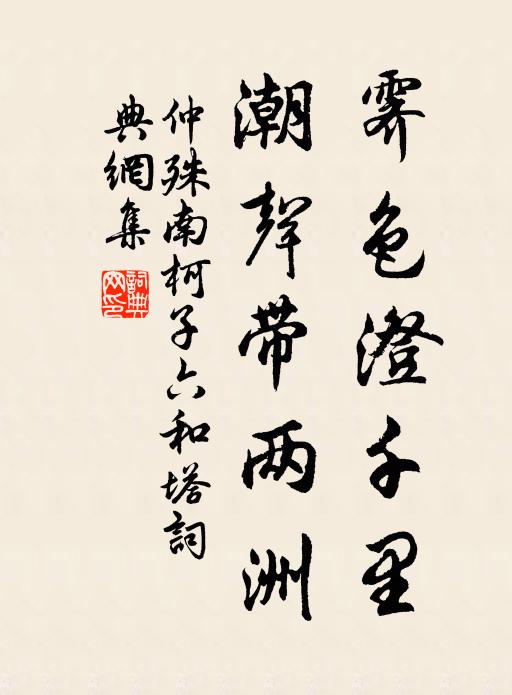 霽色澄千里
潮聲带两洲
仲殊南柯子六和塔詞
典網集
詞典網印